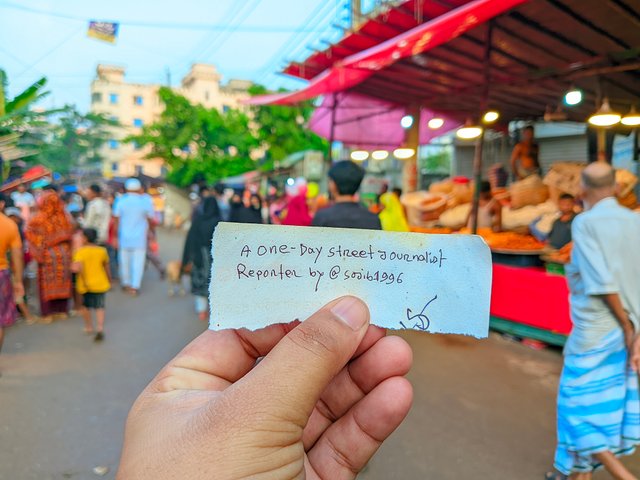 A one-Day street Journalist
Reporter by @sojib1996